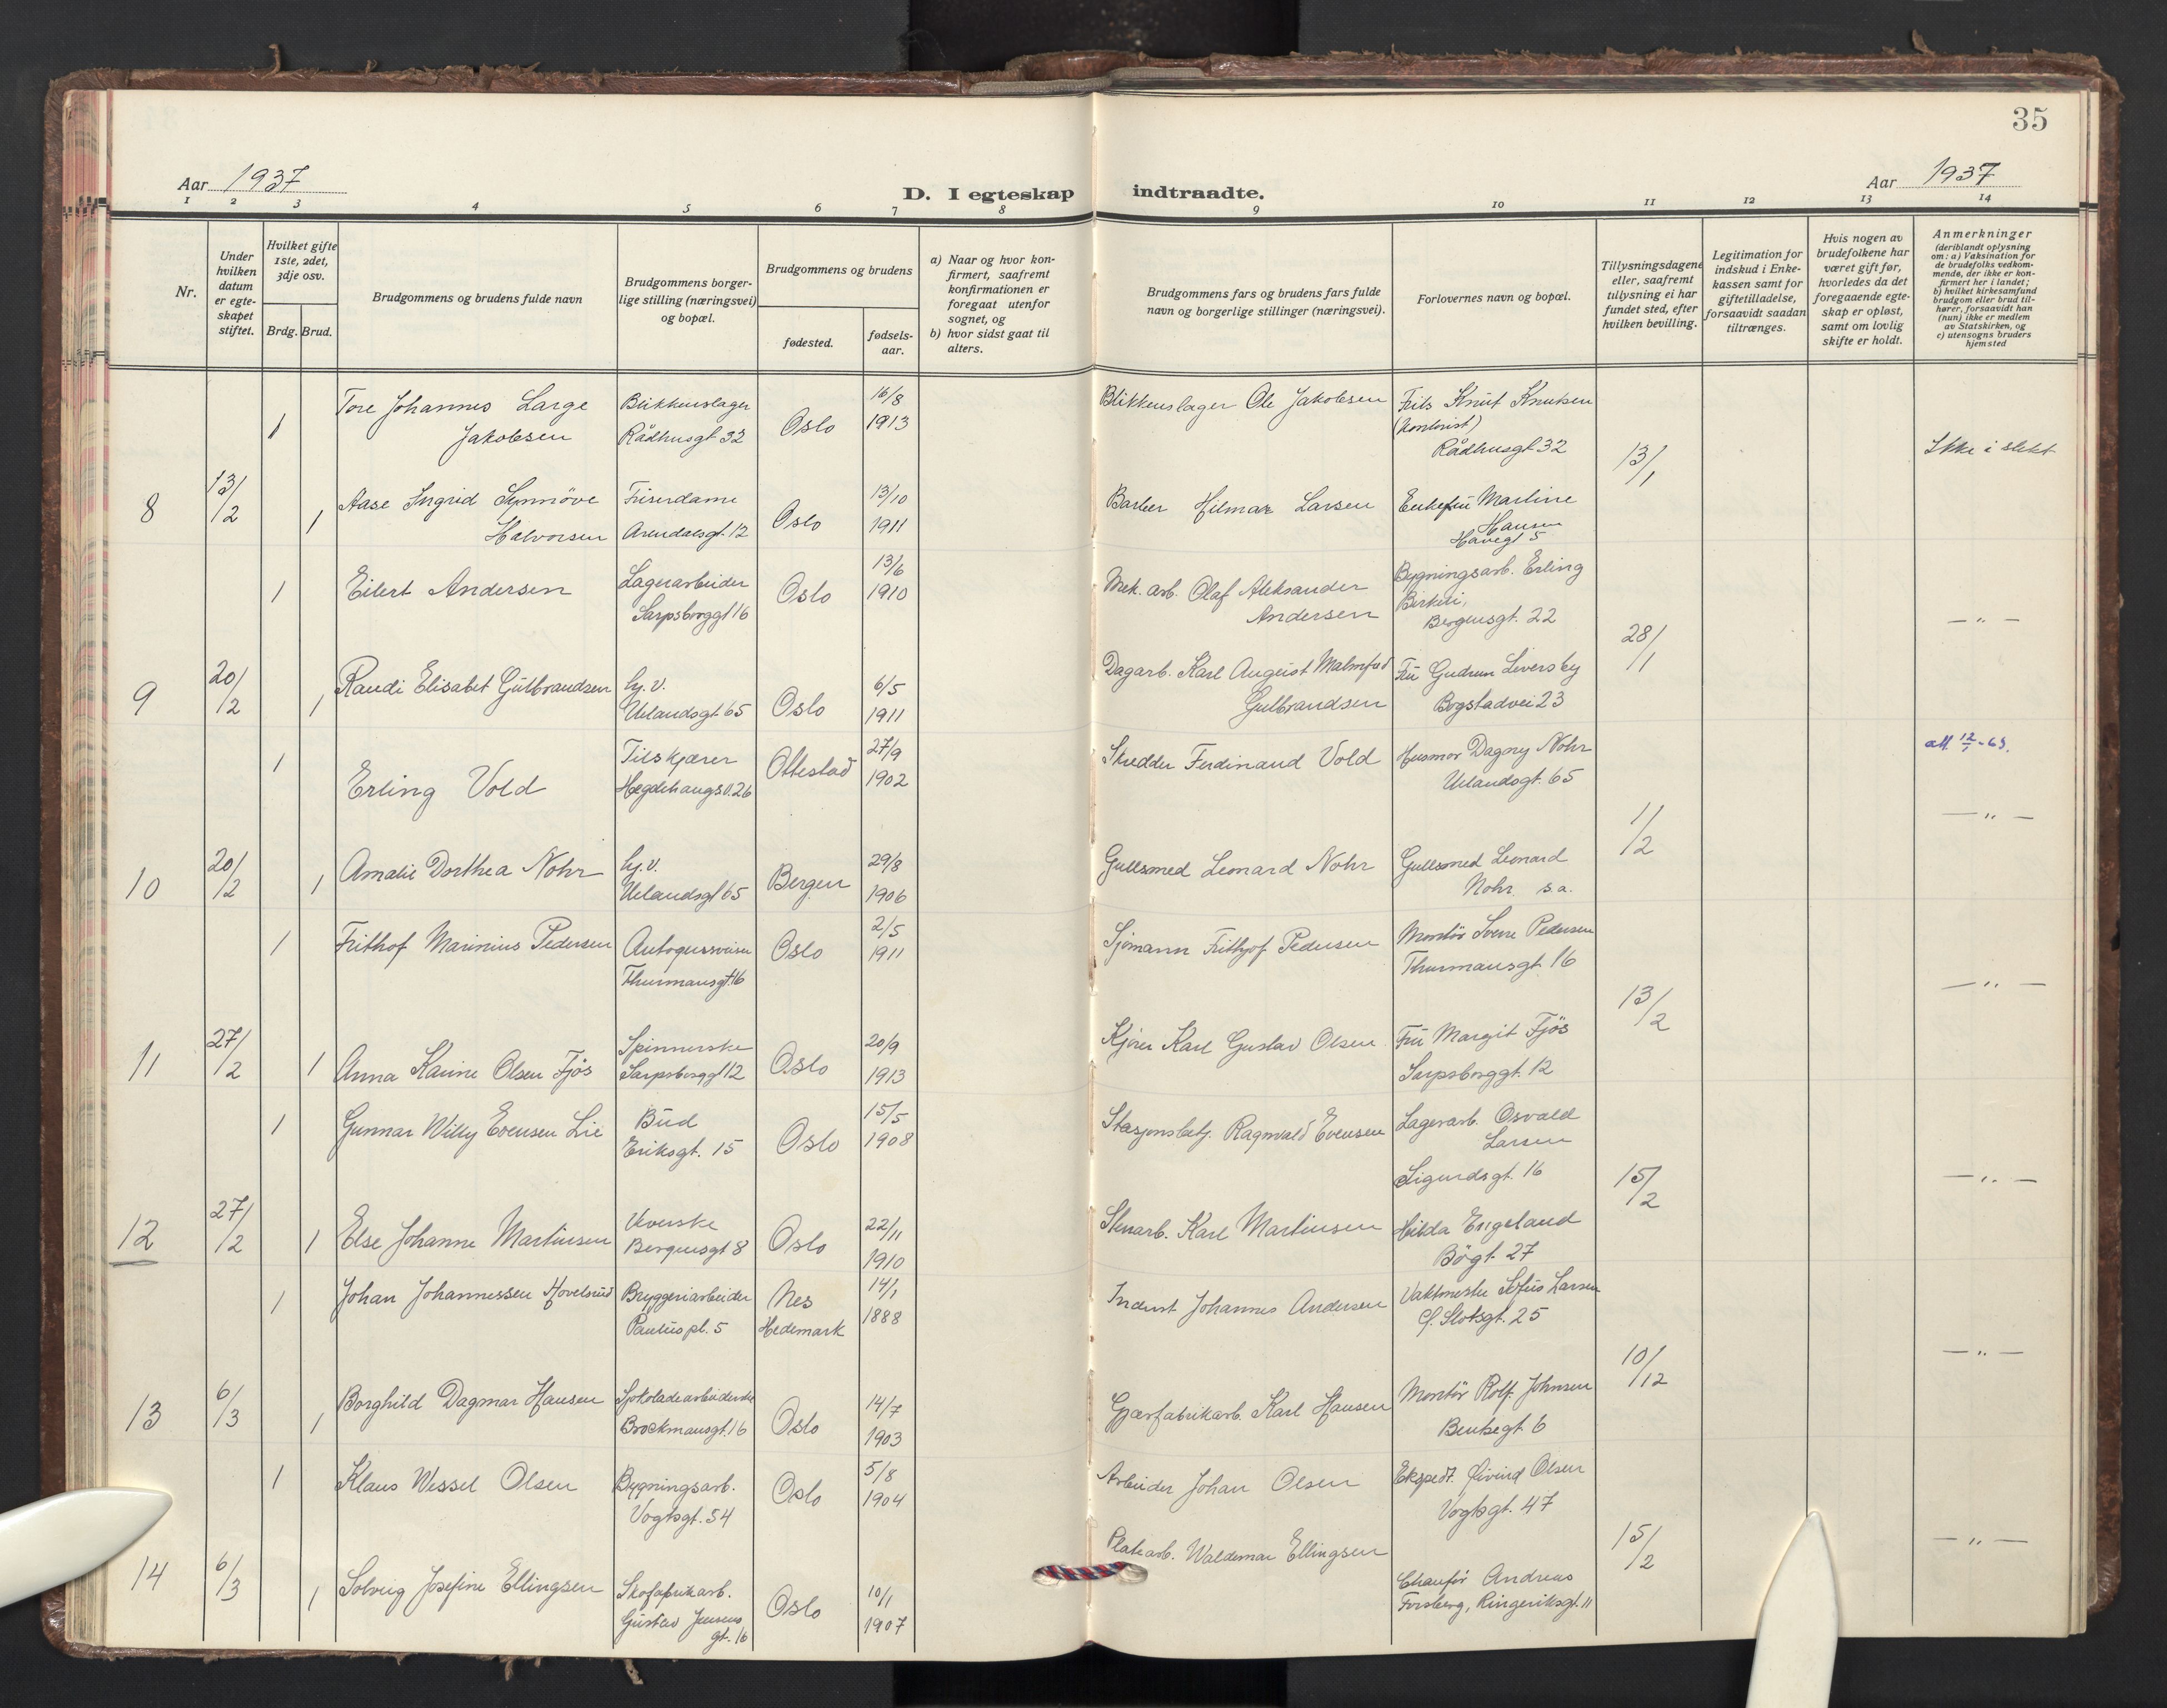 35
Aar 1937
D. I egteskap indtraadte.
Aar 1937
1 2 3 4 5 6 7 8 9 10 11 12 13 14
Nr.
Under
hvilken
datum
er egte-
skapet
stiftet.
Hvilket gifte
1ste, 2det,
3dje osv.
Brdg. Brud.
Brudgommens og brudens fulde navn
Brudgommens borger-
lige stilling (næringsvei)
og bopæl.
Brudgommens og brudens
fødested.
fødsels-
aar.
a) Naar og hvor kon-
firmert, saafremt
konfirmationen er
foregaat utenfor
sognet, og
b) hvor sidst gaat til
alters.
Brudgommens fars og brudens fars fulde
navn og borgerlige stillinger (næringsvei).
Forlovernes navn og bopæl.
Tillysningsdagene
eller, saafremt
tillysning ei har
fundet sted, efter
hvilken bevilling.
Legitimation for
indskud i Enke-
kassen samt for
giftetilladelse,
forsaavidt saadan
tiltrænges.
Hvis nogen av
brudefolkene har
været gift før,
hvorledes da det
foregaaende egte-
skap er opløst,
samt om lovlig
skifte er holdt.
Anmerkninger
(deriblandt oplysning
om: a) Vaksination for
de brudefolks vedkom-
mende, der ikke er kon-
firmert her i landet;
b) hvilket kirkesamfund
brudgom eller brud til-
hører, forsaavidt han
(hun) ikke er medlem
av Statskirken, og
c) utensogns bruders
hjemsted
1 Tore Johannes Large Blikkenslager 16/8 Blikkenslager Ole Jakobsen Frits Knut Knutsen
Jakobsen Rådhusgt 32 Oslo 1913 (Kontorist)
Rådhusgt 32 13/1 Ikke i slekt
8 13/2 1 Aase Ingrid Synnöve Friserdame 13/10 Barber Hilmar Larsen Enkefrü Martine
Halvorsen Arendalsgt. 12 Oslo 1911 Hansen
Havegt 5
1 Eilert Andersen Lagerarbeider Oslo 13/6 Mek. arb. Olaf Aleksander Bygningsarb. Erling
Sarpsborggt 16 1910 Andersen Birkeli,
Bergensgt. 22 28/1 — " —
9 20/2 1 Randi Elisabet Gülbrandsen hj. v. 6/5 Dagarb. Karl August Malmfred Frü Gudrun Liversby
Uelandsgt. 65 Oslo 1911 Gulbrandsen Bogstadvei 23
1 Tilskjærer Ottestad 27/9 Skredder Ferdinand Vold Husmor Dagny Nohr
Erling Vold Hegdehaugsv. 26 1902 Uelandsgt. 65 1/2 — " —
10 20/2 1 Amalie Dorthea Nohr hj. v. 29/8 Gullsmed Leonard Nohr Gullsmed Leonard
Uelandsgt 65 Bergen 1906 Nohr s.a.
1 Frithof Marinius Pedersen Autogensveiser Oslo 2/5 Sjömann Frithjof Pedersen Montör Sverre Pedersen
Thurmansgt. 16 1911 Thurmansgt. 16 13/2 — " —
11 27/2 1 Spinnerske 20/9 Kjörer Karl Gustav Olsen Frü Margit Fjös
Anna Karine Olsen Fjös Sarpsborggt 12 Oslo 1913 Sarpsborggt. 12
1 Gunnar Willy Evensen Lie Büd 15/5 Stasjonsbetj. Ragnvald Evensen Lagerarb. Osvald
Eriksgt. 15 Oslo 1908 Larsen
Sigurdsgt. 16 15/2 — " —
12 27/2 1 Else Johanne Martinsen Veverske 22/11 Stenarb. Karl Martinsen Hilda Engeland
Bergensgt 8 Oslo 1910 Bögt. 27
1 Johan Johannessen Hovelsrüd Bryggeriarbeider Nes 14/1 Inderst Johannes Andersen Vaktmester Sofus Larsen
Paulus pl. 5 Hedemark 1888 C. Slotsgt. 25 10/12 — " —
13 6/3 1 Borghild Dagmar Hansen Sjokoladearbeiderske 14/7 Gjærfabrikarb. Karl Hansen Montör Rolf Johnsen
Brockmansgt. 16 Oslo 1903 Bentsegt 6
1 Klaus Wessel Olsen Bygningsarb. Oslo 5/8 Arbeider Johan Olsen Ekspedt. Öivind Olsen
Vogtsgt. 54 1904 Vogtsgt. 47 15/2 — " —
14 6/3 1 Solveig Josefine Ellingsen Skofabrikarb. 10/1 Platearb. Waldemar Ellingsen Chauför Andreas
Gustav Jensens Oslo 1907 Forsberg, Ringeriksgt. 11
gt. 16